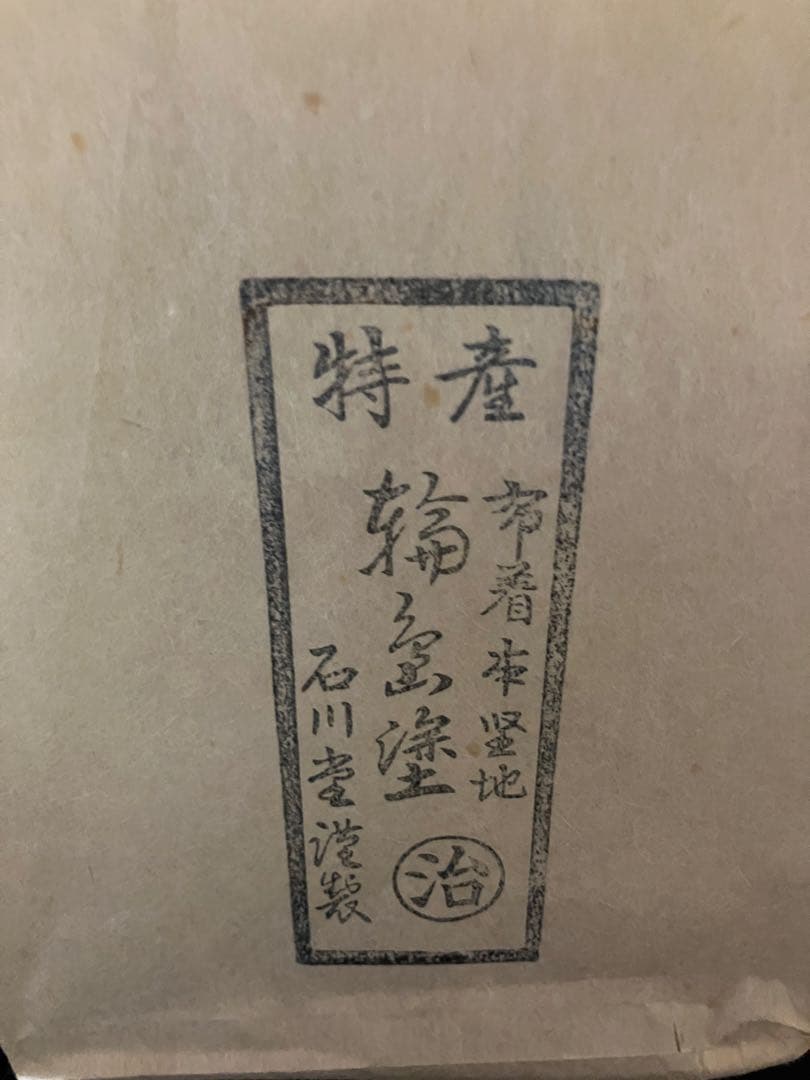 特産
布着本堅地
輪島塗
治
石川堂謹製